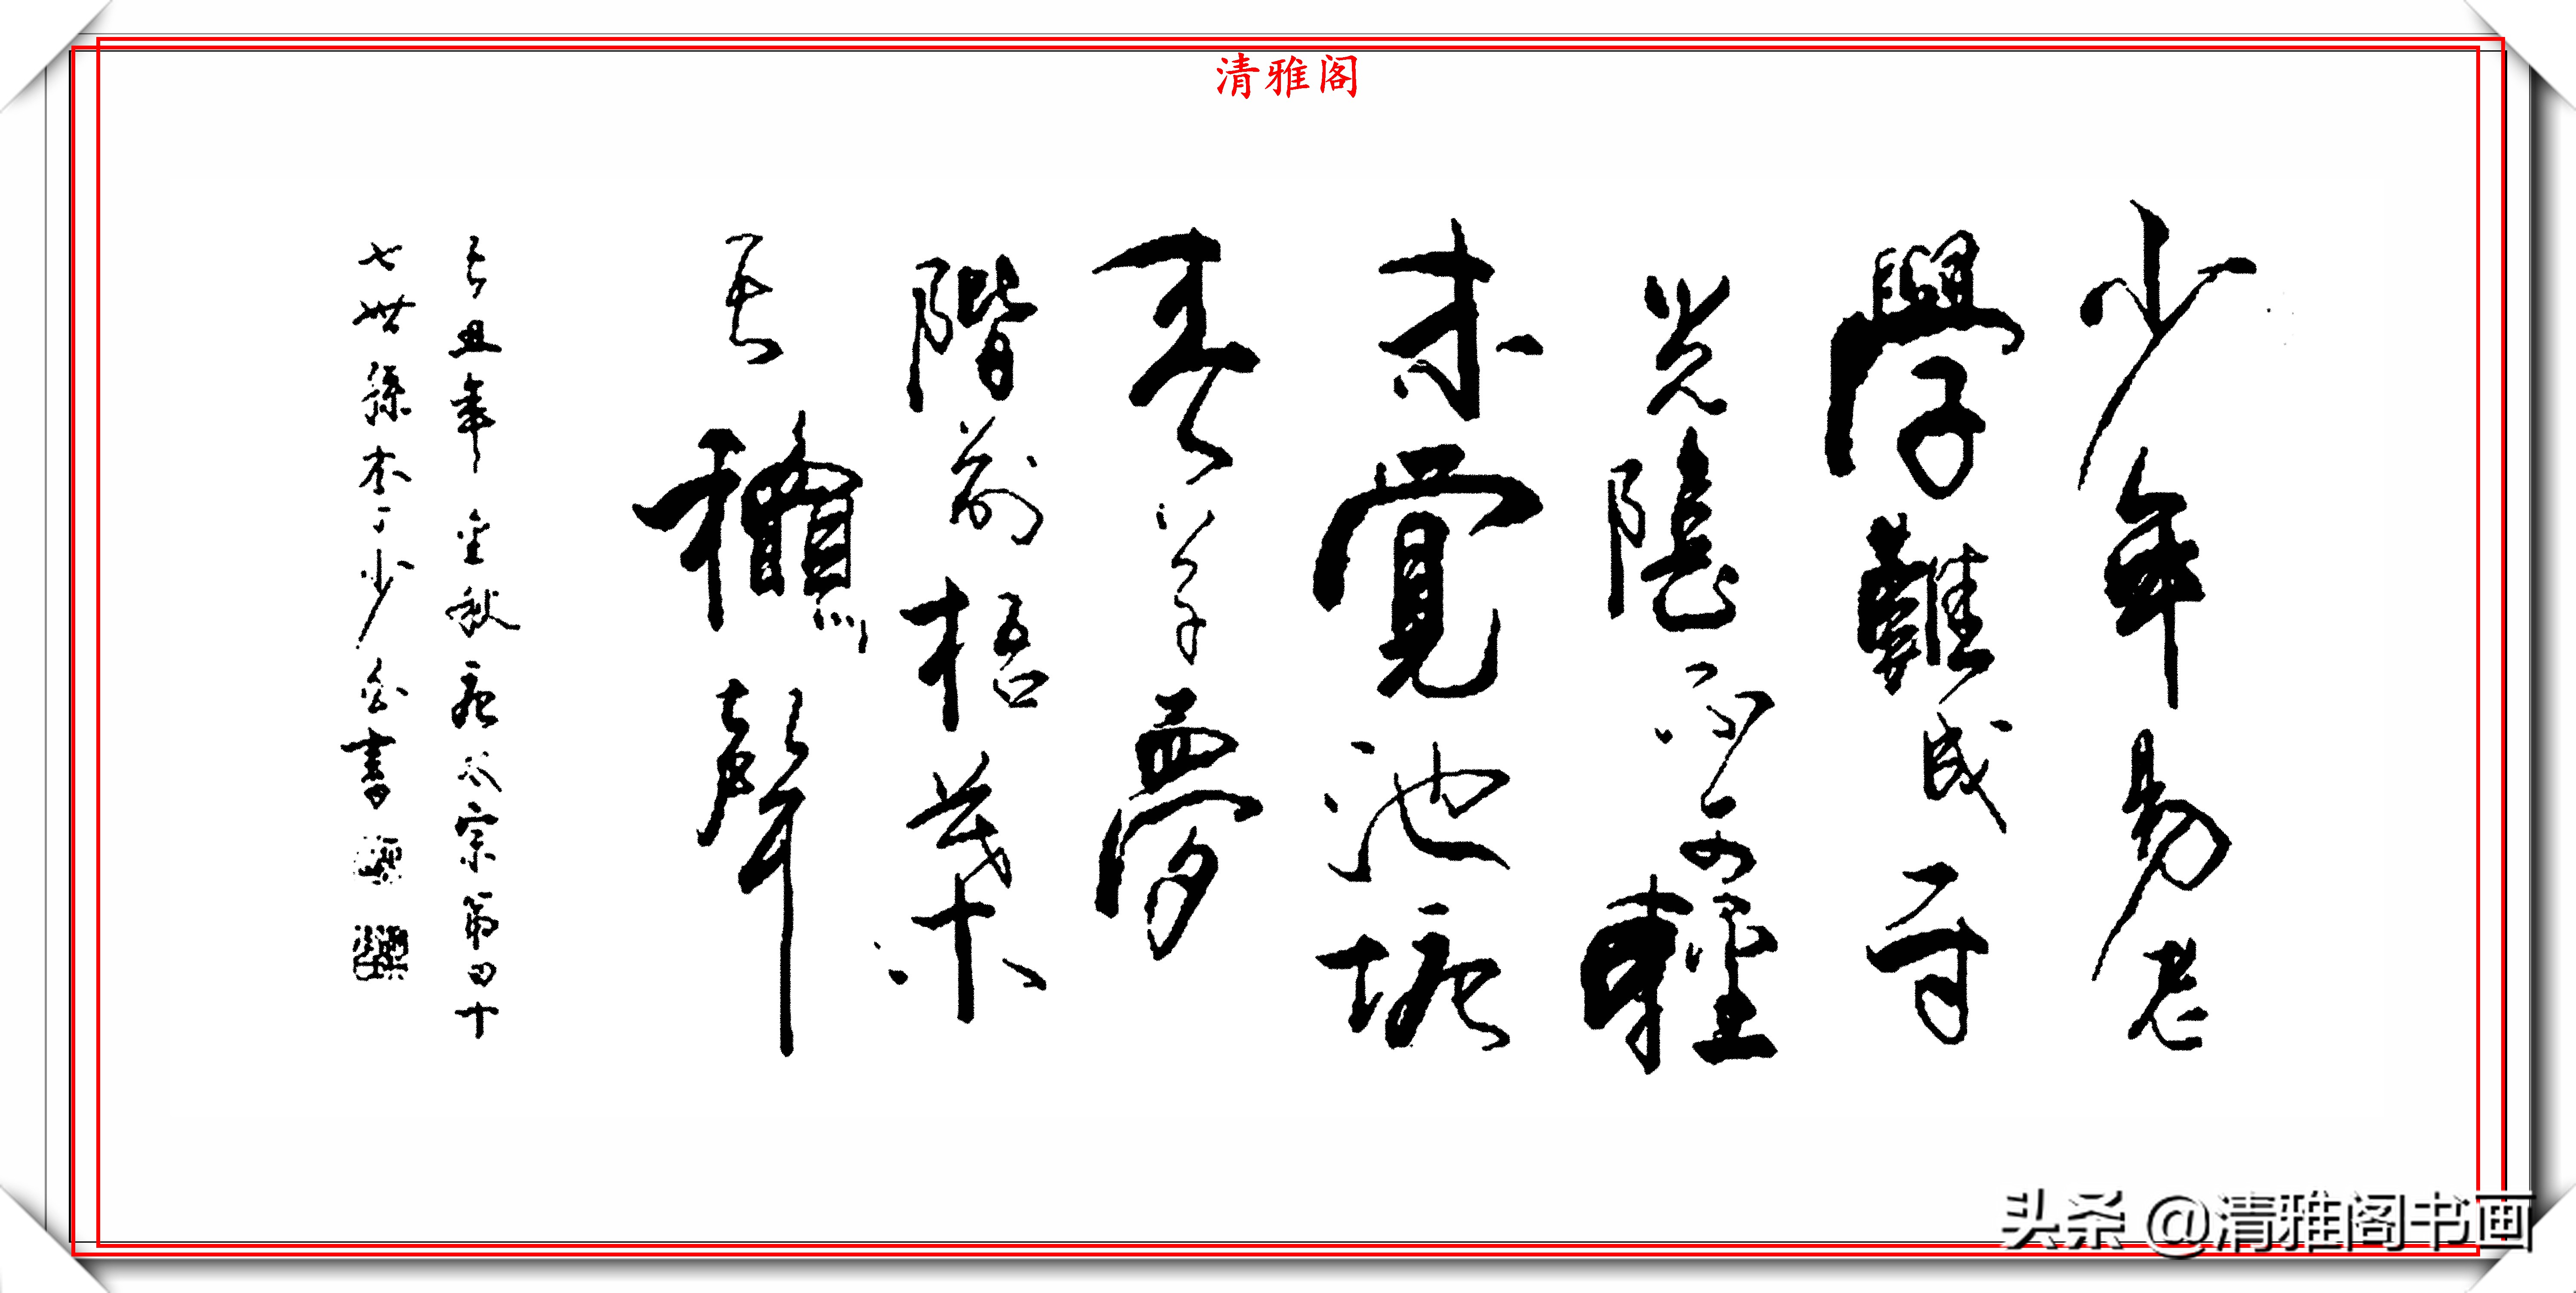 清雅阁
少年易老
學難成一寸
光陰不可輕
未覺池塘
春草夢
階前梧葉
已龝聲
己丑年金秋唐太宗第四十
七世孫李丁少書
头条 @清雅阁书画